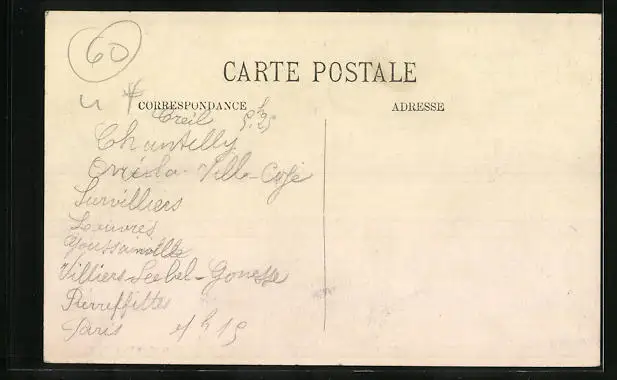 60
CARTE POSTALE
CORRESPONDANCE
ADRESSE
Creil 5h25
Chantilly
Orri la-Ville-Coye
Survilliers
Louvres
Goussainville
Villiers Le bel-Gonesse
Pierrefittes
Paris h 15